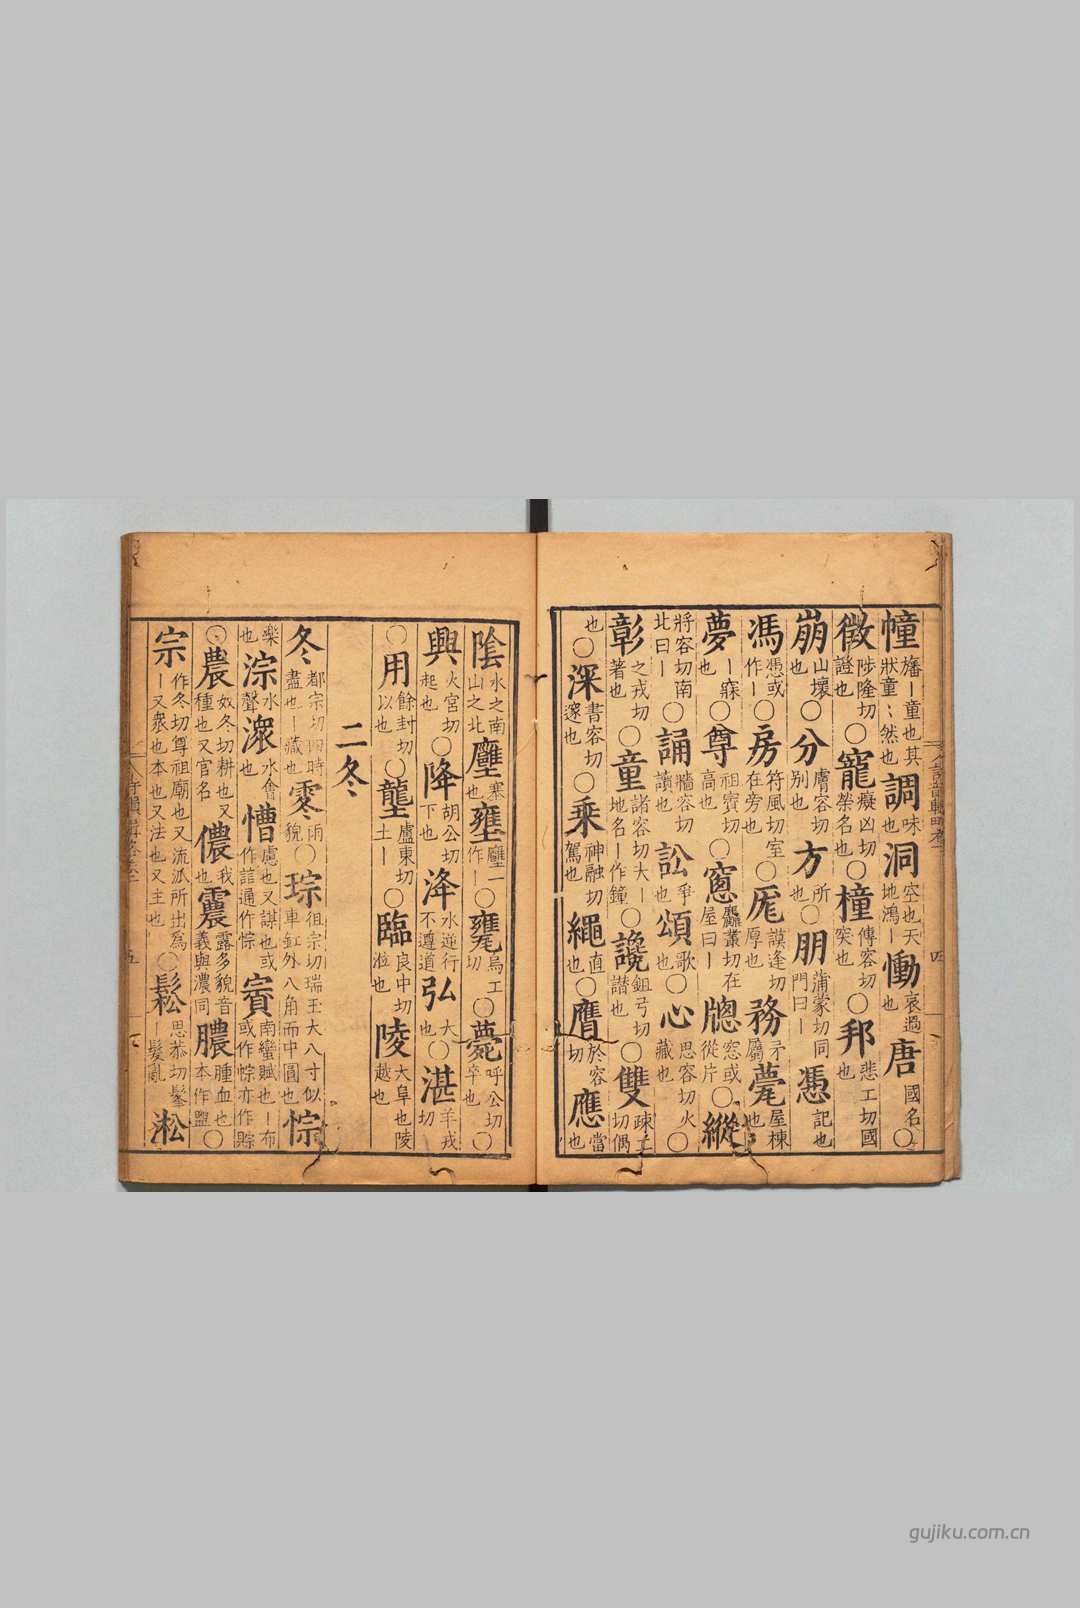 幢旛丨童也其狀童〻然也調味也洞空也天地鴻丨慟哀過也唐國名〇
徵陟隆切證也〇寵癡凶切榮名也〇橦傳容切突也〇邦悲工切國也
崩山壞也〇分膚容切別也方所也〇朋蒲蒙切同門曰丨憑記也
馮憑或作丨〇房符風切室在旁也〇厖謨逢切厚也務矛屬甍屋棟也
夢丨寐也〇尊祖賨切高也〇窻麤叢切在屋曰丨牎窓或從片〇縱
將容切南北曰丨〇誦牆容切讀也訟爭也頌歌也〇心思容切火藏也〇
彰之戎切著也〇童諸容切大丨地名丨作鐘〇讒鉏弓切譖也〇雙疎工切偶
也〇深書容切邃也〇乘神融切駕也繩直也〇膺於容切應當也
陰水之南山之北壅寨也壅作丨〇甕烏工切〇薨呼公切卒也〇
興火宮切起也〇降胡公切下也洚水逆行不遵道弘大也〇湛羊戎切
〇用餘封切以也〇壟盧東切土丨〇臨良中切涖也陵大阜也陵越也
二冬
冬都宗切四時盡也丨藏也零雨貌〇琮徂宗切瑞玉大八寸似車釭外八角而中圓也悰
樂也淙水聲潨水會也慒慮也又謀也或作誴通作悰賨南蠻賦也丨布或作悰亦作賩
〇農奴冬切耕也又種也又官名儂我也震露多貌音義與濃同膿腫血也本作盥〇
宗作冬切尊祖廟也又流派所出為丨又衆也本也又法也又主也〇鬆思恭切髼丨髮亂淞
四
五
gujiku.com.cn